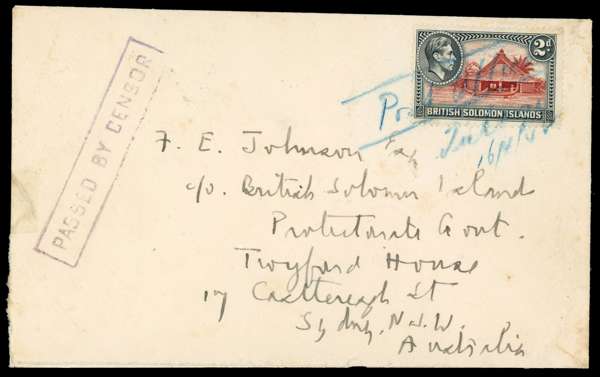 PASSED BY CENSOR
2d
BRITISH SOLOMON ISLANDS
Post Office
F. E. Johnson Esq
c/o. British Solomon Island
Protectorate Govt.
Twyford House
17 Castlereagh St
Sydney. N.S.W.
Australia